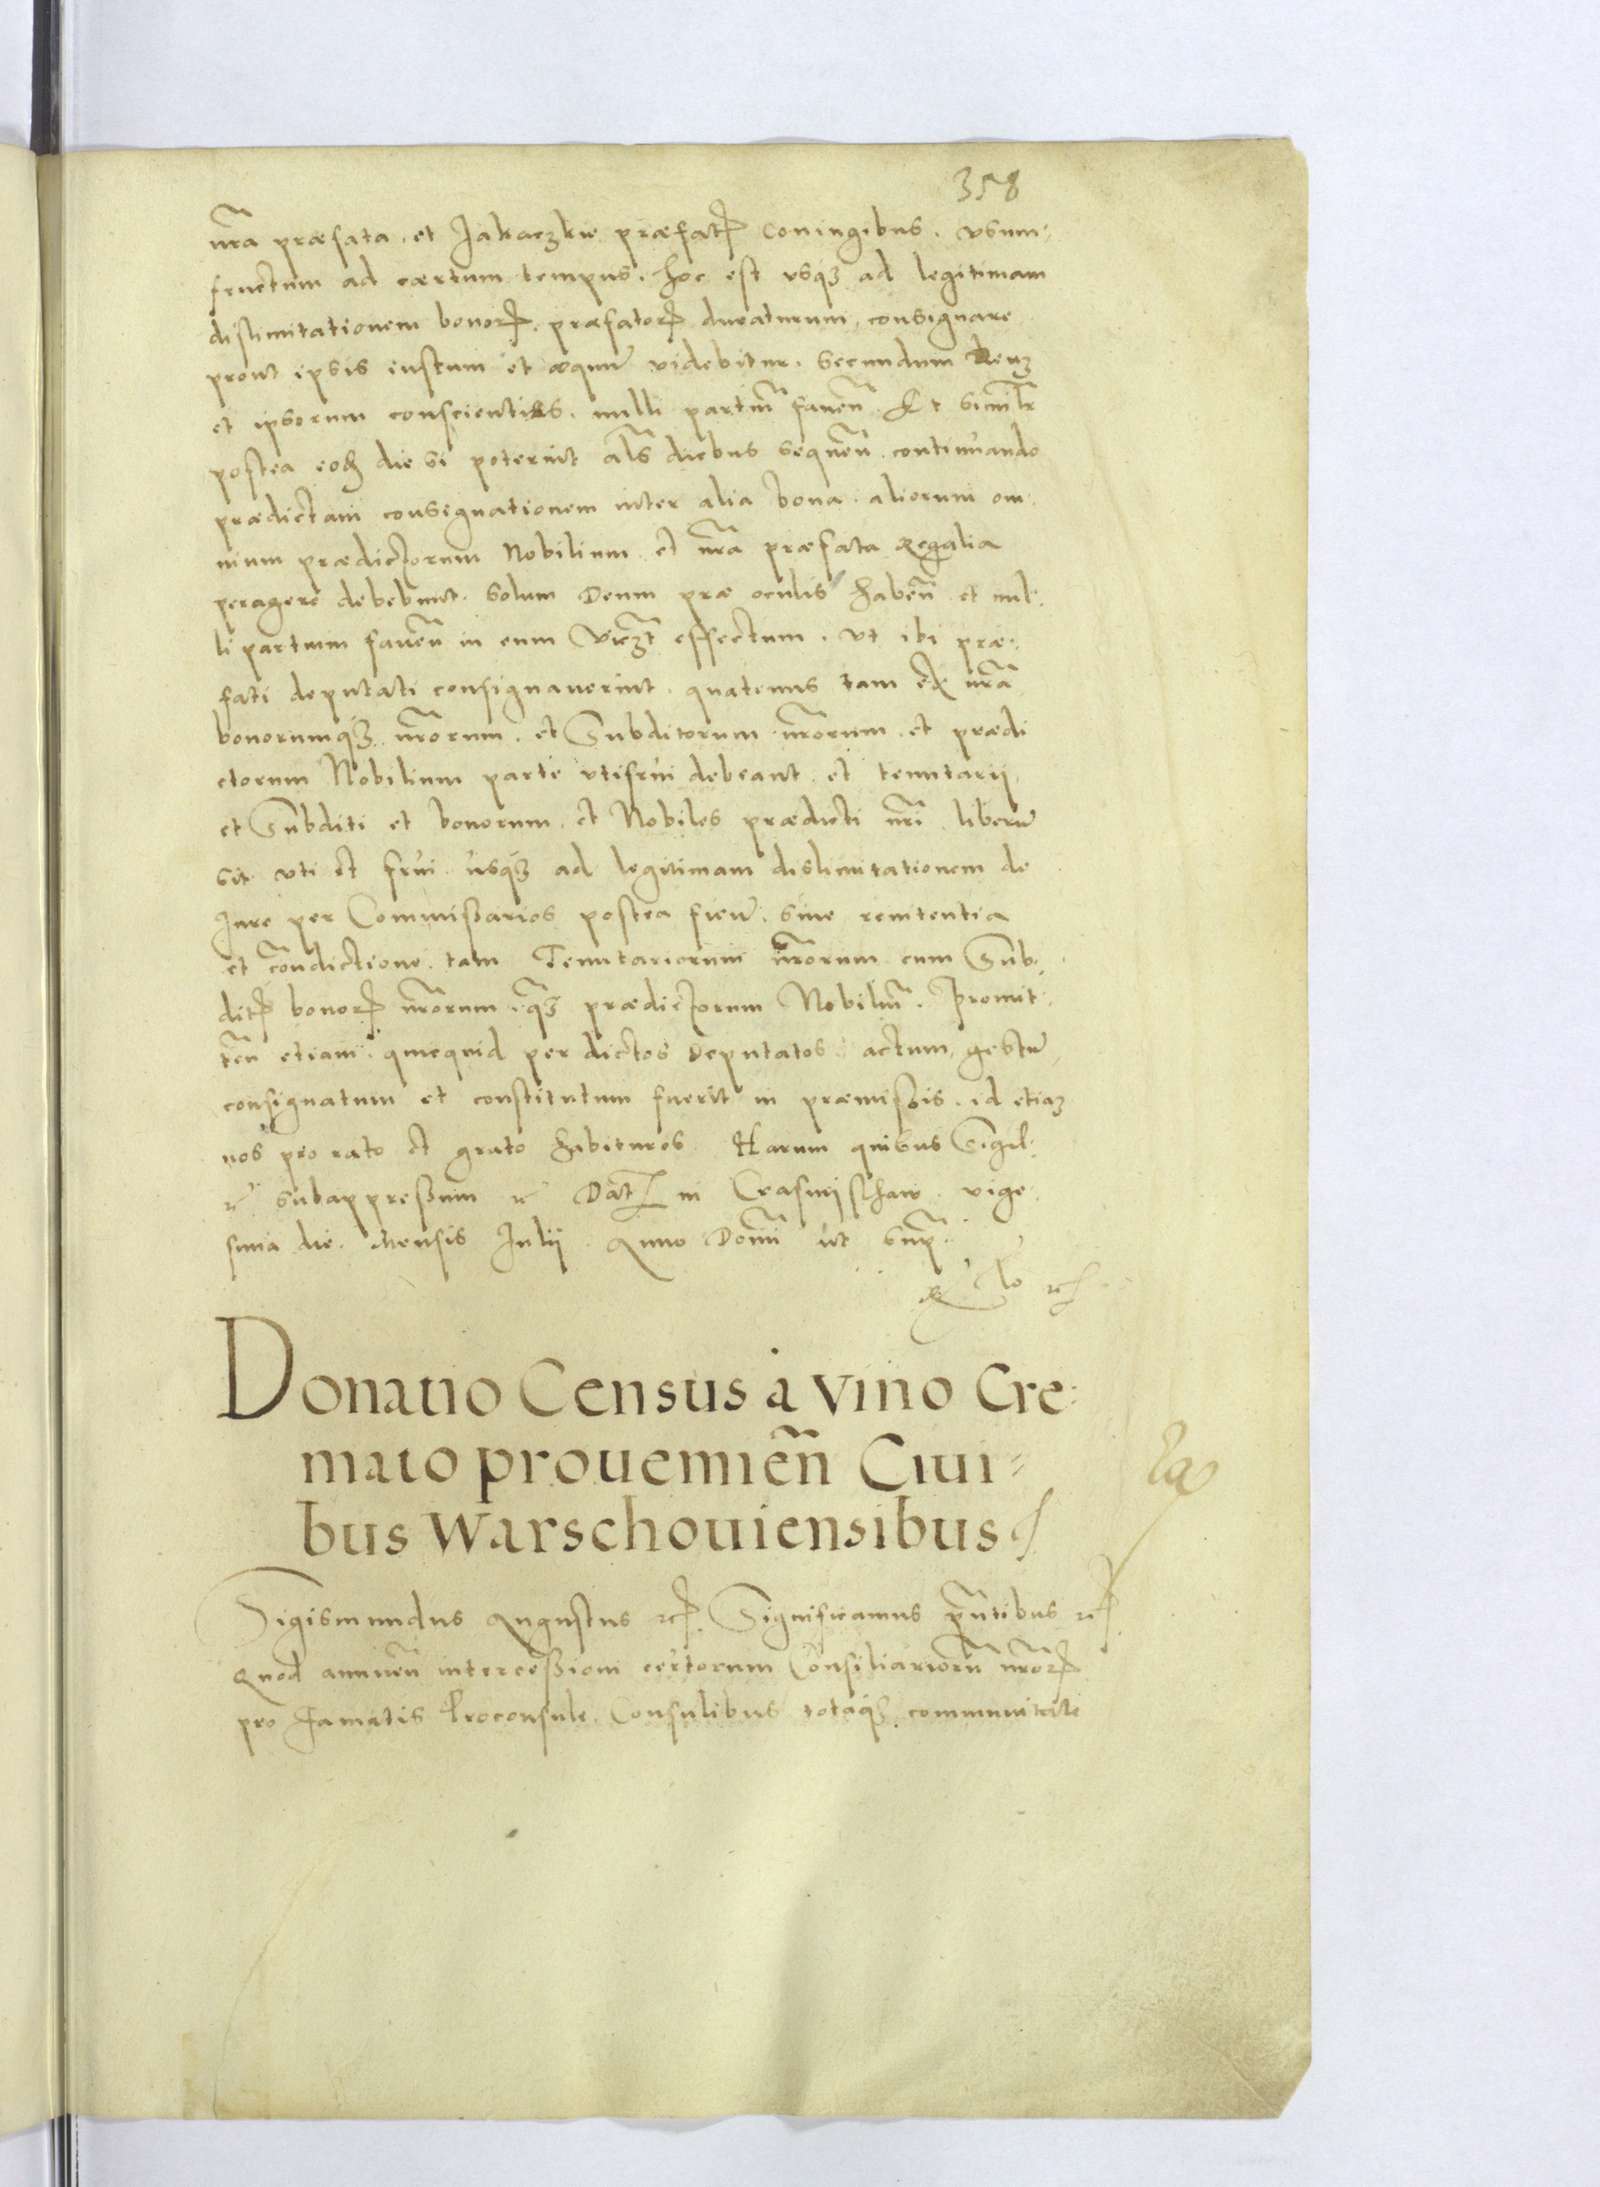 358
nr̃a præfata. et Jakaczkie præfatꝝ Coniugibus. vsum-
fructum ad certum tempus. hoc est vsqꝫ ad legitimam
dislimitationem bonorꝝ. præfatorꝝ duraturum, consignare
prout ipsis iustum et æquũ videbitur. secundum Deuꝫ
et ipsorum conscientias. nulli partiũ fauen̄. Et similr̃
postea eod̃ die si poterint al̃s diebus sequen̄. continuando
prædictam consignationem inter alia bona. aliorum om-
nium prædictorum Nobilium et nr̃a præfata Regalia
peragere debebunt. solum Deum præ oculis haben̄ et nul-
li partium fauen̄ in eum viꝫt effectum. vt ibi præ-
fati deputati consignauerint. quatenus tam ex nr̃a
bonorumqꝫ nr̃orum. et Subditorum nr̃orum. et prædi
ctorum Nobilium parte vtifrui debeant. et tenutarij
et Subditi et bonorum. et Nobiles prædicti nr̃i. liberũ
sit vti et frui usqꝫ ad legitimam dislimitationem de
Jure per Commissarios postea fien̄. sine renitentia
et cõndictione. tam Tenutariorum nr̃orum cum Sub-
ditꝭ bonorꝝ nr̃orum. qꝫ prædictorum Nobiliũ. Promit-
ten̄ etiam quicquid per dictos Deputatos actum, gestũ,
consignatum et constitutum fuerit in præmissis. id etiaꝫ
nos pro rato et grato habituros. Harum quibus Sigil-
ꝛc̃ subappressum ꝛc̃ Dat in Crasnijsthaw. vige-
sima die. Mensis Julij. Anno Domĩ ut supͣ.
Donatio Census à vino Cre-
mato prouenien̄ Ciui-
bus Warschouiensibus
Sigismundus Augustus ꝛc̃. Significamus pñtibus ꝛc̃
Quod annuen̄ intercessioni certorum Consiliariorũ nr̃orꝝ
pro Famatis Proconsule. Consulibus totaqꝫ communitate